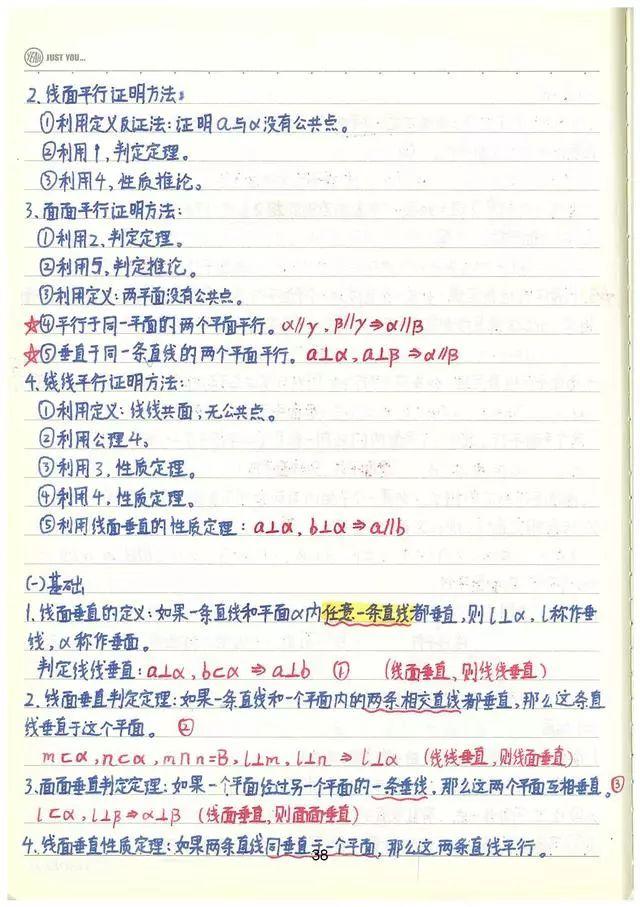 YEAH JUST YOU...
2. 线面平行证明方法:
①利用定义反证法:证明a与α没有公共点。
②利用1,判定定理。
③利用4,性质推论。
3. 面面平行证明方法:
①利用2、判定定理。
②利用5,判定推论。
③利用定义:两平面没有公共点。
★④平行于同一平面的两个平面平行。α∥γ,β∥γ⇒α∥β
★⑤垂直于同一条直线的两个平面平行。a⊥α,a⊥β⇒α∥β
4. 线线平行证明方法:
①利用定义:线线共面,无公共点。
②利用公理4。
③利用3,性质定理。
④利用4,性质定理。
⑤利用线面垂直的性质定理:a⊥α,b⊥α⇒a∥b
(一)基础
1. 线面垂直的定义:如果一条直线和平面α内任意一条直线都垂直,则l⊥α,l称作垂
线,α称作垂面。
判定线线垂直:a⊥α,b⊂α⇒a⊥b ① (线面垂直,则线线垂直)
2. 线面垂直判定定理:如果一条直线和一个平面内的两条相交直线都垂直,那么这条直
线垂直于这个平面。②
m⊂α,n⊂α,m∩n=B,l⊥m,l⊥n⇒l⊥α (线线垂直,则线面垂直)
3. 面面垂直判定定理:如果一个平面经过另一个平面的一条垂线,那么这两个平面互相垂直。③
l⊂α,l⊥β⇒α⊥β (线面垂直,则面面垂直)
4. 线面垂直性质定理:如果两条直线同垂直于一个平面,那么这两条直线平行。
38